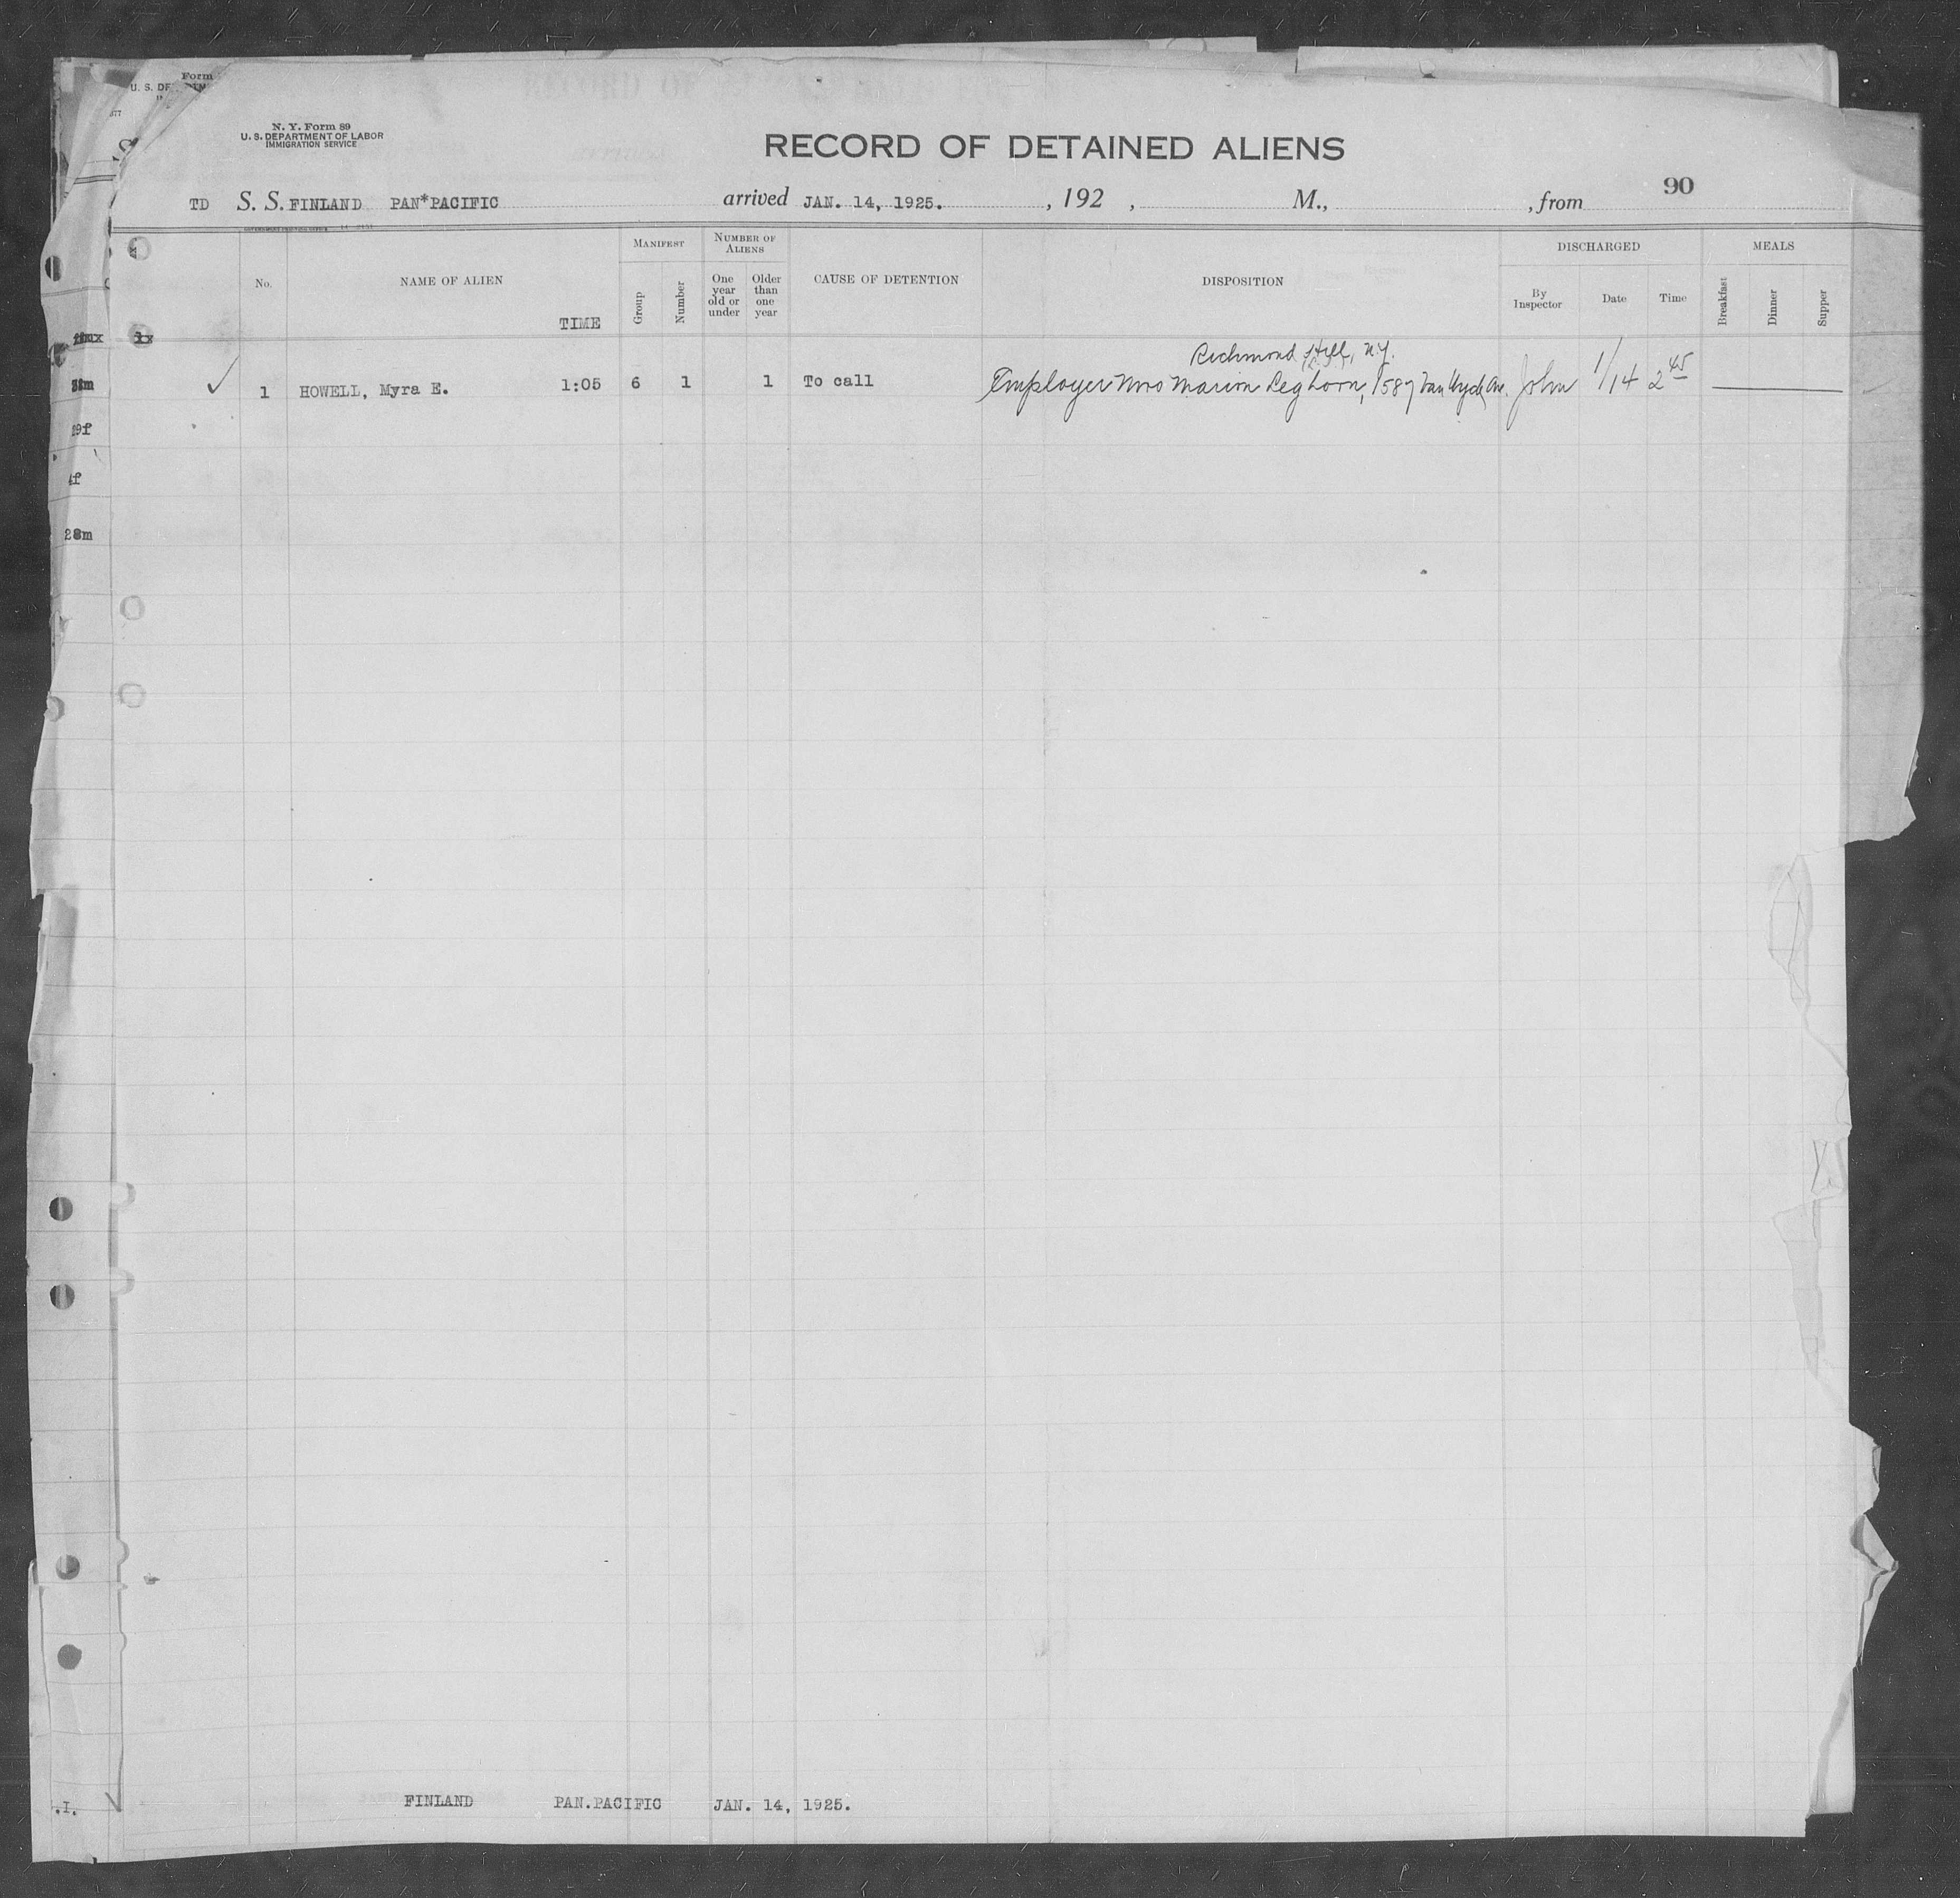 Form
U. S. DE
N. Y. Form 89
U. S. DEPARTMENT OF LABOR
IMMIGRATION SERVICE
RECORD OF DETAINED ALIENS
90
TD S. S. FINLAND PAN*PACIFIC arrived JAN. 14, 1925. , 192 , M., , from
No. NAME OF ALIEN TIME MANIFEST Group Number NUMBER OF ALIENS One year old or under Older than one year CAUSE OF DETENTION DISPOSITION DISCHARGED By Inspector Date Time MEALS Breakfast Dinner Supper
Richmond Hill, N.Y.
1 HOWELL, Myra E. 1:05 6 1 1 To call Employer Mrs Marion Leghorn, 1587 Van Wyck Av. John 1/14 2 45
19f
4f
28m
FINLAND PAN.PACIFIC JAN. 14, 1925.
.I.